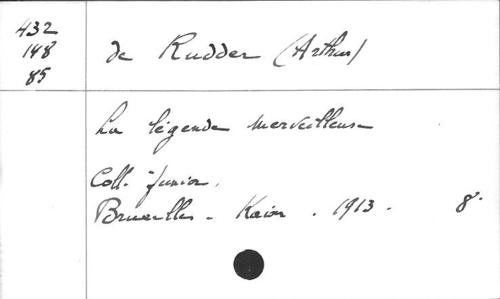 432
148
85
de Rudder (Arthur)
La légende merveilleuse
Coll. Junior.
Bruxelles - Kain . 1913 . 8°